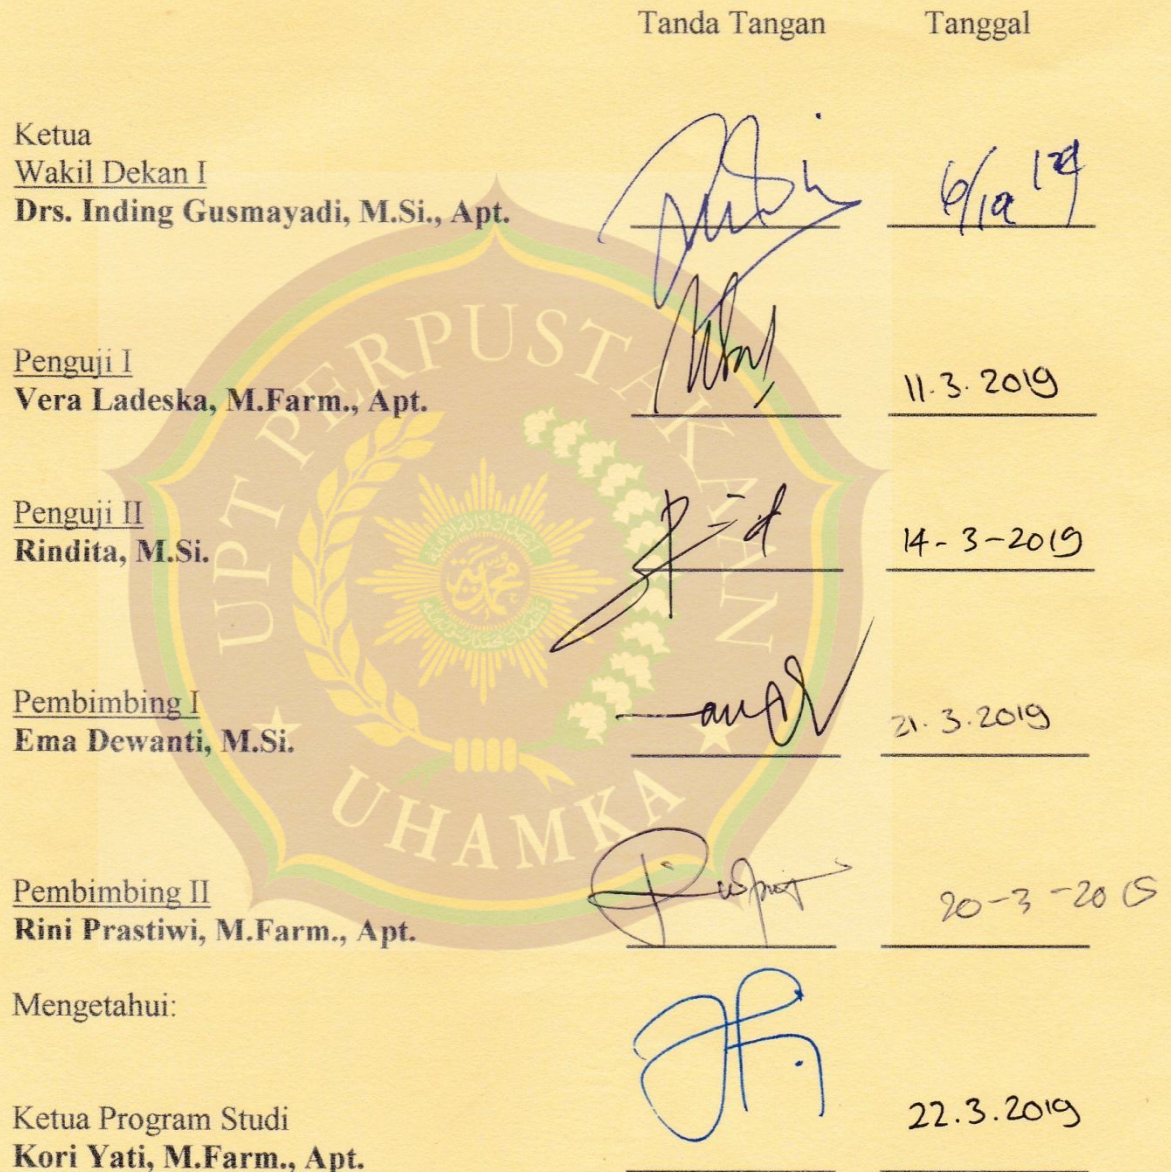 Tanda Tangan Tanggal
Ketua
Wakil Dekan I
Drs. Inding Gusmayadi, M.Si., Apt.
Penguji I
Vera Ladeska, M.Farm., Apt. 11.3.2019
Penguji II
Rindita, M.Si. 14-3-2019
Pembimbing I
Ema Dewanti, M.Si. 21.3.2019
Pembimbing II
Rini Prastiwi, M.Farm., Apt. 20-3-
Mengetahui:
Ketua Program Studi 22.3.2019
Kori Yati, M.Farm., Apt.
UPT PERPUSTAKAAN
UHAMKA